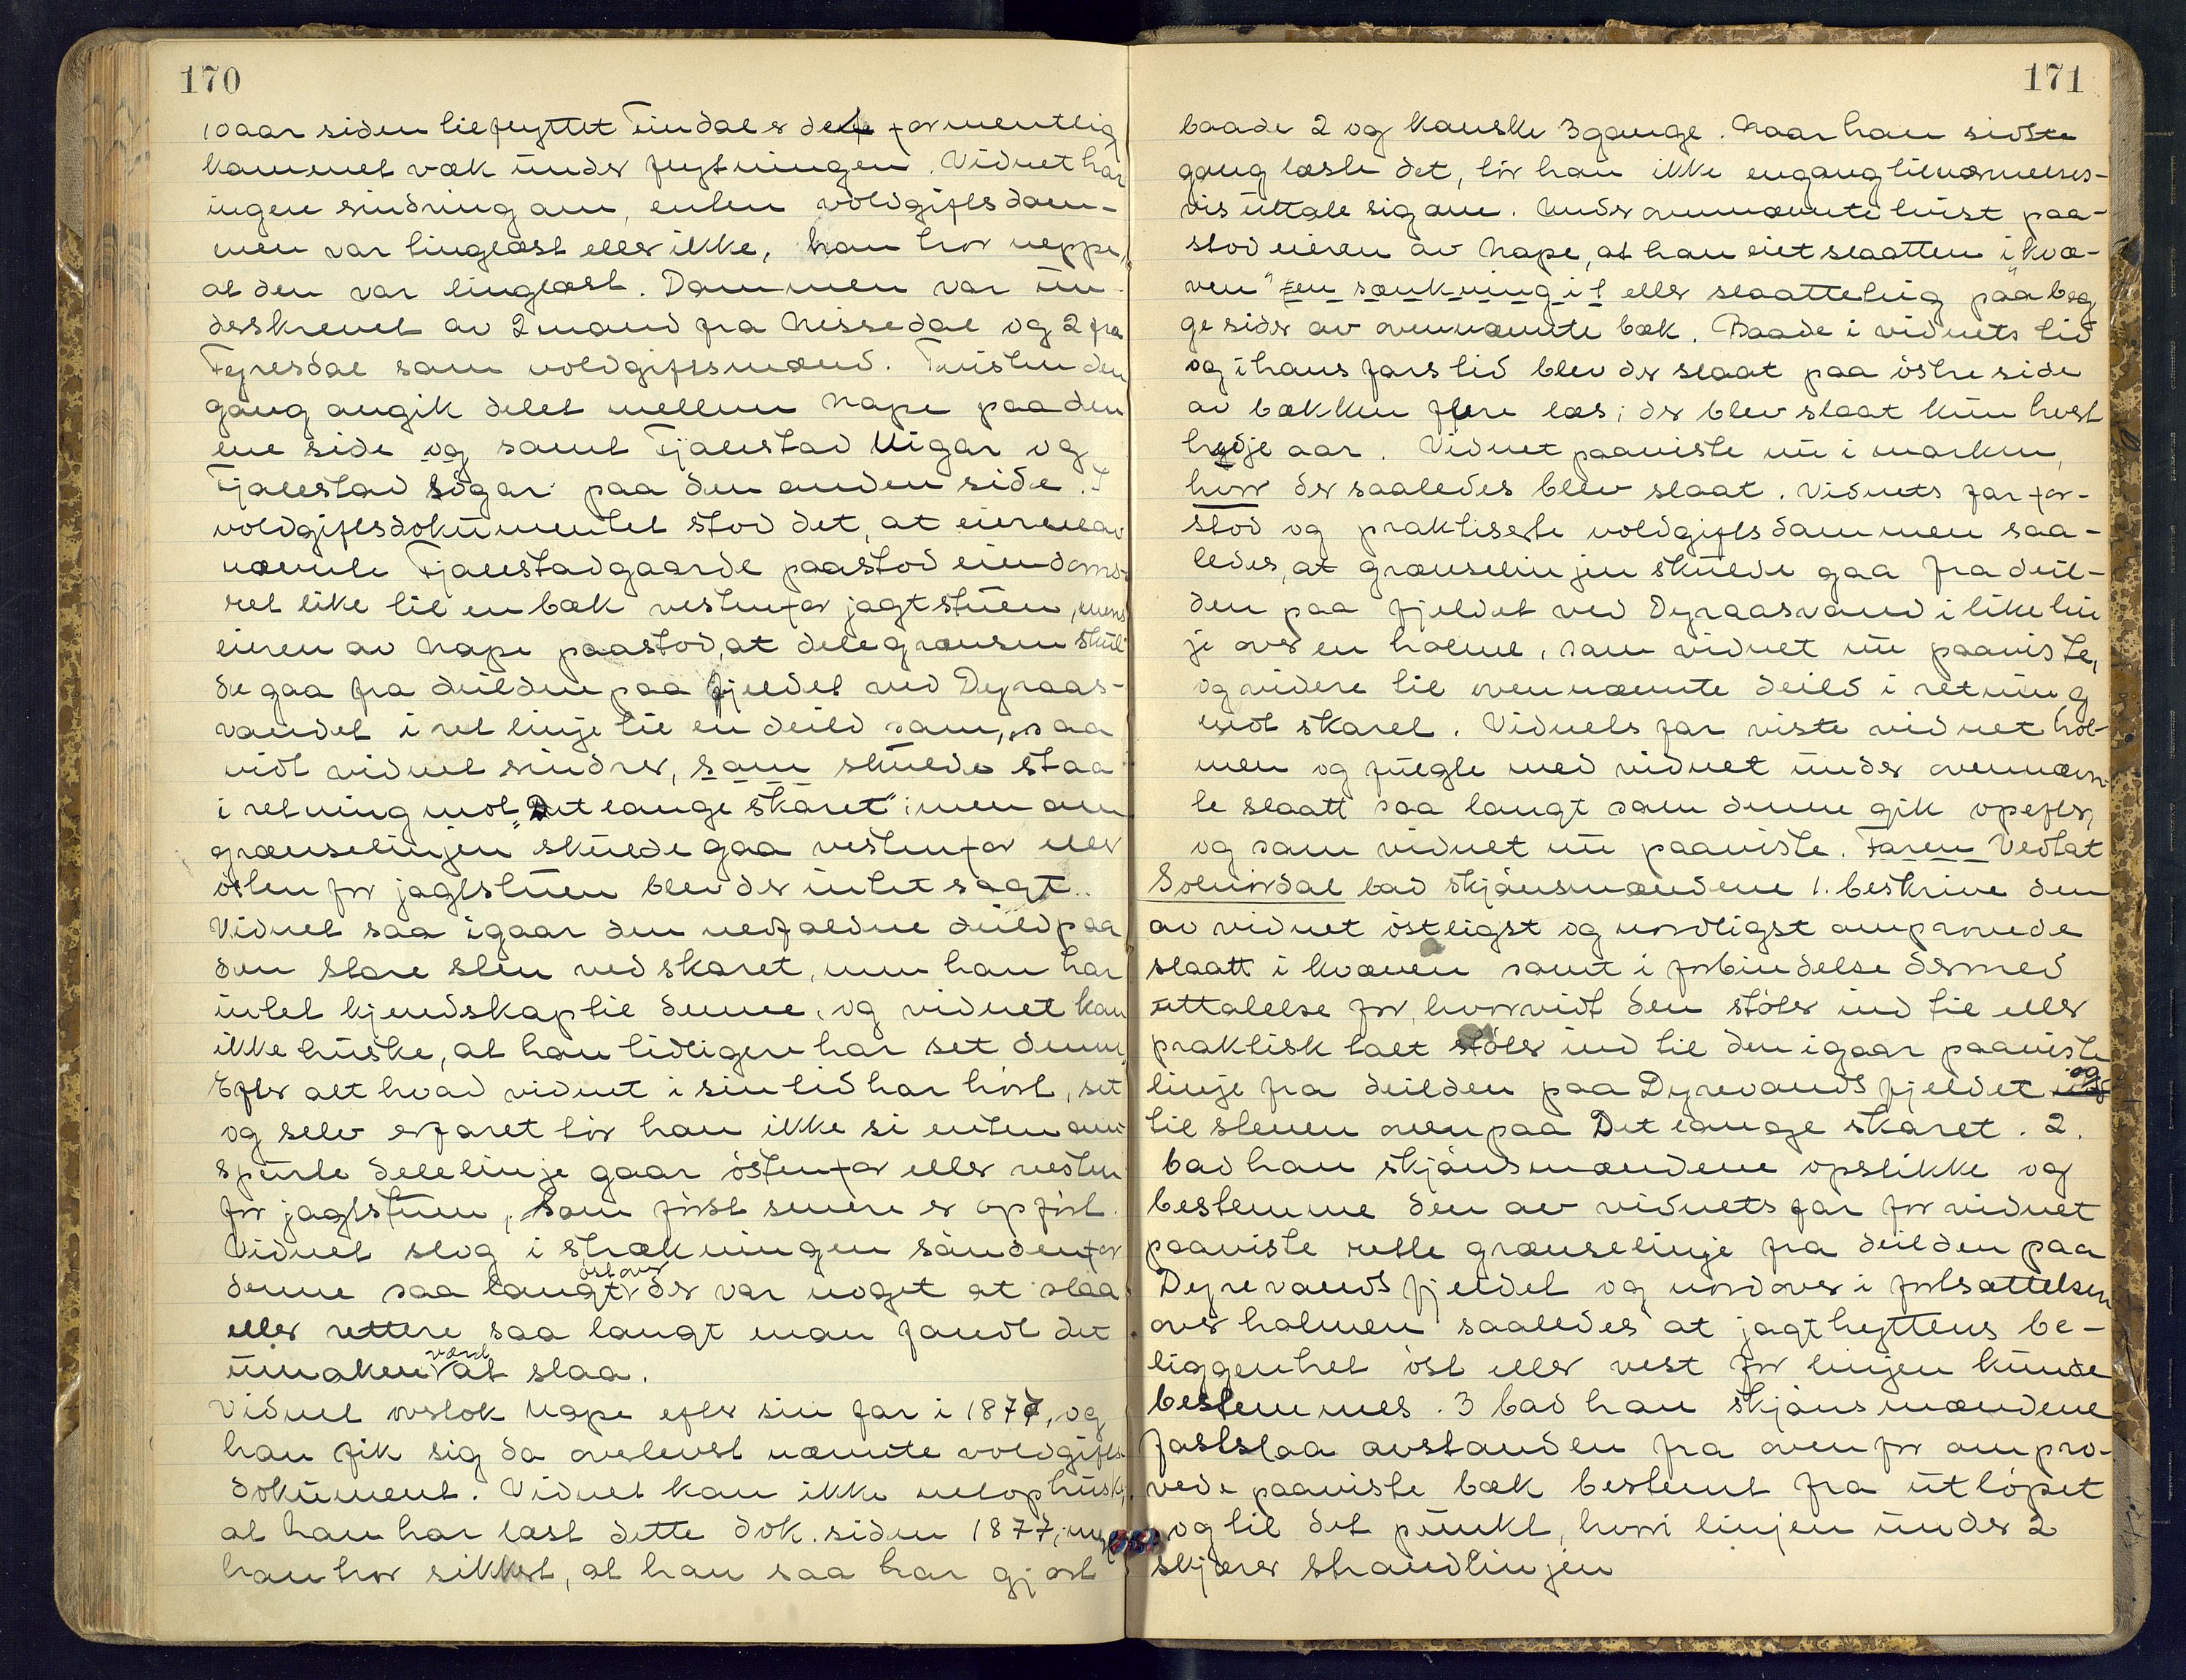 170
10 aar siden tilflyttet Eindal er dette formentlig
kommet væk under flytningen. Vidnet har
ingen erindring om, enten voldgiftsdom-
men var tinglæst eller ikke, han tror neppe,
at den var tinglæst. Dommen var un-
derskrevet av 2 mand fra Nissedal og 2 fra
Fyresdal som voldgiftsmænd. Tvisten den
gang angik delet mellem Nape paa den
ene side og samt Fjalestad Uigar og
Fjalestad Sigar paa den anden side. I
voldgiftsdokumentet stod det, at eierne av
nævnte Fjalestadgaarde paastod eiendoms-
ret like til en bæk vestenfor jagtstuen, mens
eieren av Nape paastod, at delegrænsen skul-
de gaa fra deilden paa fjeldet ved Dyraas-
vandet i ret linje til en deild som, saa
vidt vidnet erindrer, som skulde staa
i retning mot "Det lange skaret"; men om
grænselinjen skulde gaa vestenfor eller
østen for jagtstuen blev der intet sagt.
Vidnet saa igaar den nedfaldne deild paa
den store sten ved skaret, men han har
intet kjendskap til denne, og vidnet kan
ikke huske, at han tidligere har set denne.
Efter alt hvad vidnet i sin tid har hørt, set
og selv erfaret tør han ikke si enten om-
spurte delelinje gaar østenfor eller vesten
for jagtstuen, som først senere er opført.
Vidnet slog i strækningen søndenfor
østover
denne saa langt der var noget at slaa
eller rettere saa langt man fandt det
værd
umaken at slaa.
Vidnet overtok Nape efter sin far i 1877, og
han fik sig da overlevert nævnte voldgifts-
dokument. Vidnet kan ikke netop huske,
at han har læst dette dok. siden 1877; men
han tror sikkert, at han saa har gjort
171
baade 2 og kanske 3 gange. Naar han sidste
gang læste det, tør han ikke engang tilnærmelses-
vis uttale sig om. Under ovennævnte tvist paa-
stod eieren av Nape, at han eiet slaatten i "kvæ-
ven" "en sænkning i" eller slaattelug paa beg
ge sider av ovennævnte bæk. Baade i vidnets tid
og i hans fars tid blev der slaat paa østre side
av bækken flere læs; der blev slaat kun hvert
tredje aar. Vidnet paaviste nu i marken,
hvor der saaledes blev slaat. Vidnets far for-
stod og praktiserte voldgiftsdommen saa-
ledes, at grænselinjen skulde gaa fra deil-
den paa fjeldet ved Dyraasvand i like lin
je over en holme, som vidnet nu paaviste,
og videre til ovennævnte deild i retning
mot skaret. Vidnets far viste vidnet hol-
men og fulgte med vidnet under ovennævn-
te slaatt saa langt som denne gik opefter,
og som vidnet nu paaviste. Faren Vedtat
Solnørdal bad skjønsmændene 1. beskrive den
av vidnet østligst og nordligst omprovede
slaatt i kvæven samt i forbindelse dermed
uttalelse for, hvorvidt den støter ind til eller
praktisk talt støter ind til den igaar paaviste
og
linje fra deilden paa Dyrevandsfjeldet
til stenen ovenpaa Det lange skaret. 2.
bad han skjønsmændene opstikke og
bestemme den av vidnets far for vidnet
paaviste rette grænselinje fra deilden paa
Dyrevandsfjeldet og nordover i fortsættelsen
over holmen saaledes at jagthyttens be-
liggenhet øst eller vest for linjen kunde
bestemmes. 3 bad han skjønsmændene
fastslaa avstanden fra ovenfor ompro-
vede paaviste bæk bestemt fra utløpet
og til det punkt, hvori linjen under 2
skjærer strandlinjen